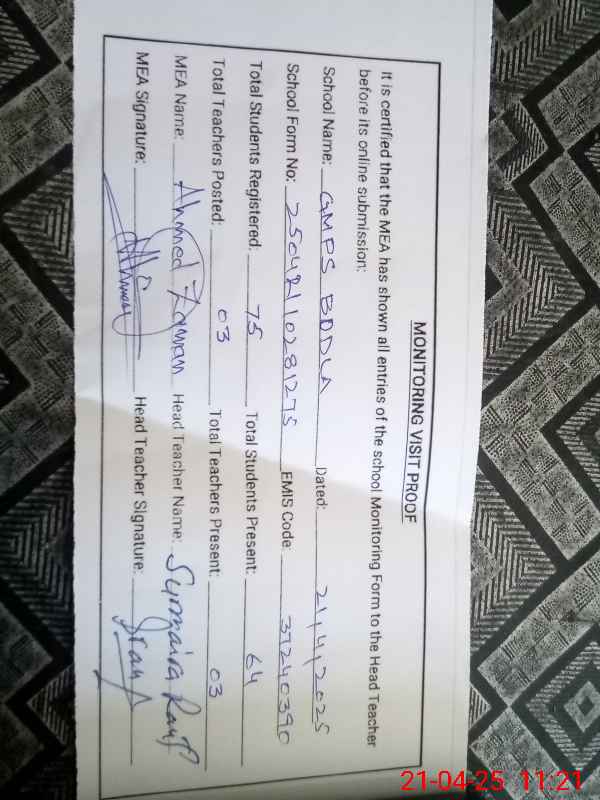 MONITORING VISIT PROOF
It is certified that the MEA has shown all entries of the school Monitoring Form to the Head Teacher
before its online submission:
School Name: GMPS BODLA Dated: 21,4,2025
School Form No: 25042110281275 EMIS Code 37240390
Total Students Registered: 75 Total Students Present: 64
Total Teachers Posted: 03 Total Teachers Present: 03
MEA Name: Ahmed Zaman Head Teacher Name: Sumaira Rauf
MEA Signature: Head Teacher Signature:
21-04-25 11:21